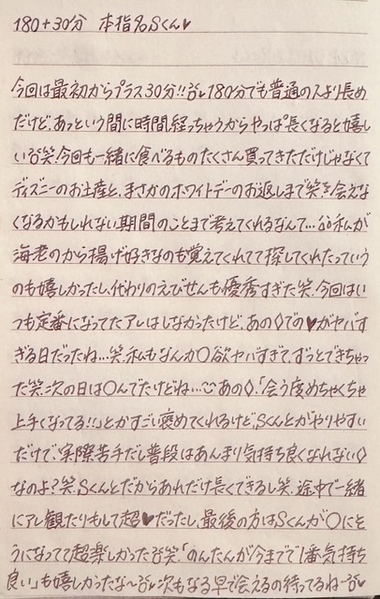 180+30分 本指名Sくん♥
今回は最初からプラス30分!! 180分でも普通の人より長め
だけど、あっという間に時間経っちゃうからやっぱ長くなると嬉し
い笑 今回も一緒に食べるものたくさん買ってきただけじゃなくて
ディズニーのお土産と、まさかのホワイトデーのお返しまで笑 会えな
くなるかもしれない期間のことまで考えてくれるなんて… 私が
海老のから揚げ好きなのも覚えてくれてて探してくれたっていう
のも嬉しかったし、代わりのえびせんも優秀すぎた笑 今回はい
つも定番になってたアレはしなかったけど、あの◊での♥がヤバす
ぎる日だったね…笑 私もなんか〇欲ヤバすぎて、ずっとできちゃっ
た笑 次の日は〇んでたけどね… あの◊、「会う度めちゃくちゃ
上手くなってる!!」とかすごい褒めてくれるけど、Sくんとがやりやすい
だけで、実際苦手だし普段はあんまり気持ち良くなれない◊
なのよ?笑 Sくんとだからあれだけ長くできるし笑 途中で一緒
にアレ観たりもして超♥だったし、最後の方はSくんが〇にそ
うになってて超楽しかった笑 「のんたんが今までで1番気持ち
良い」も嬉しかったな〜 次もなる早で会えるの待ってるね〜